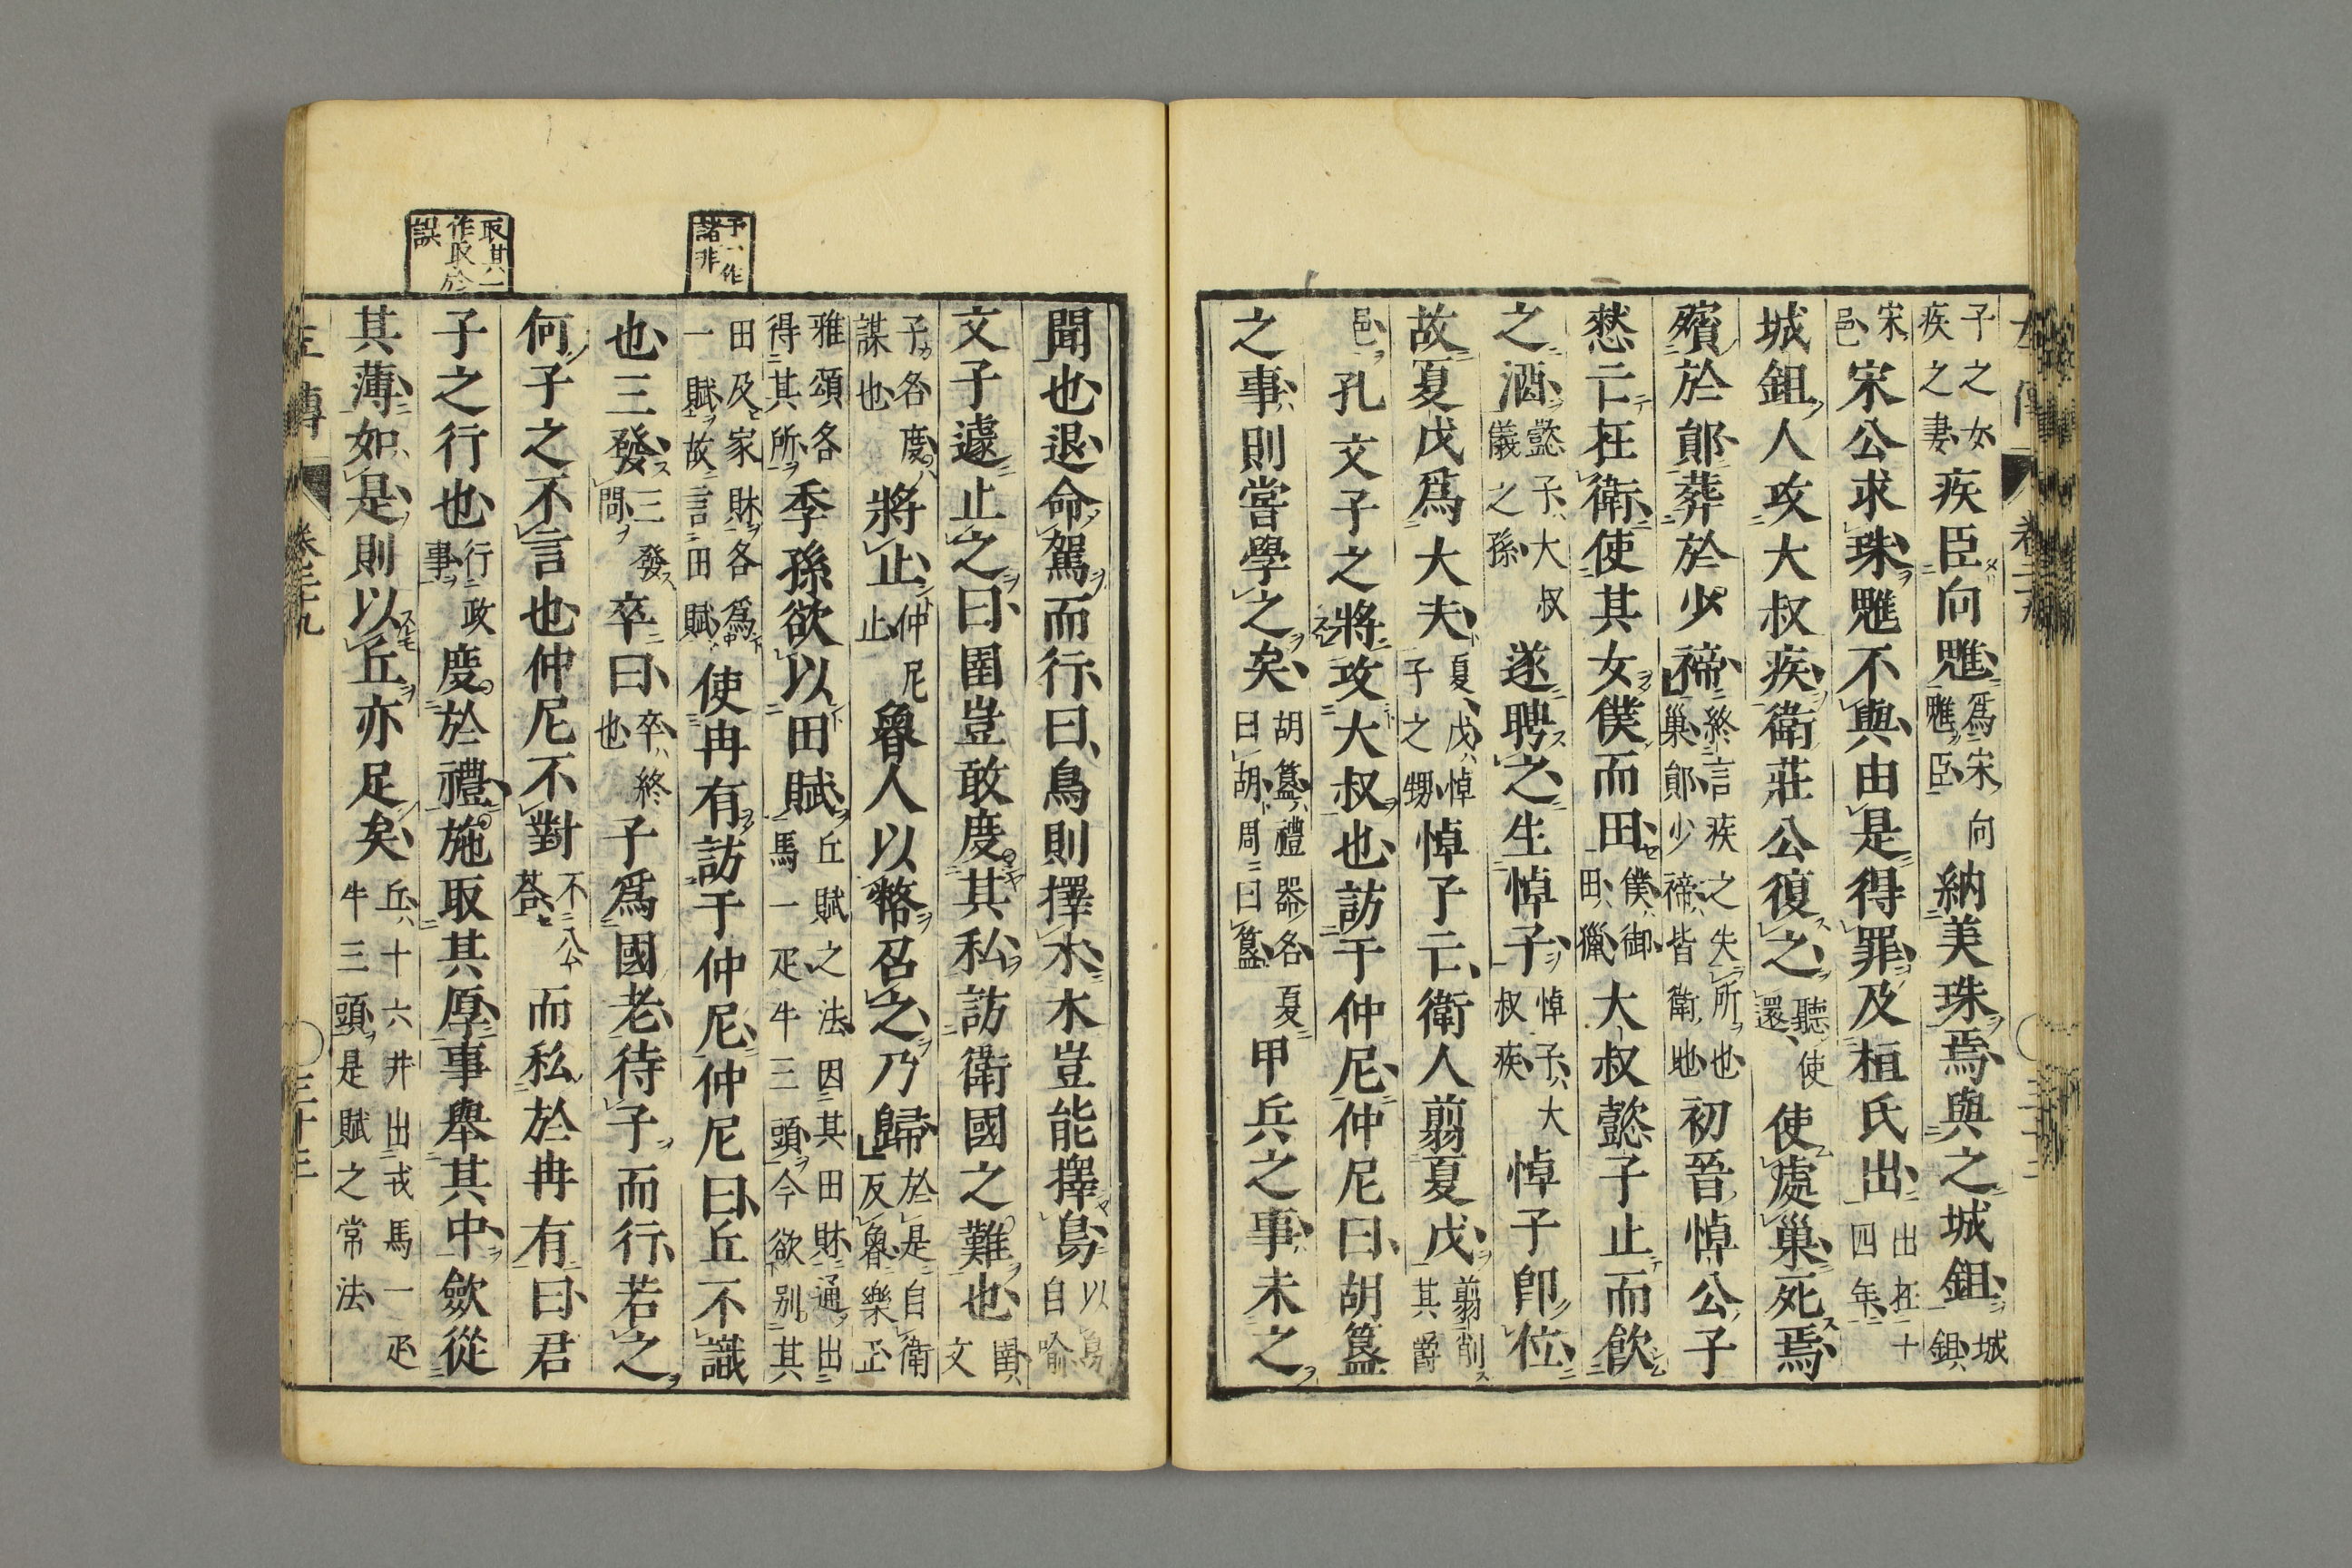 子之女疾之妻疾臣向魋爲宋向魋臣納美珠焉與之城鉏城鉏
宋邑宋公求珠魋不與由是得罪及桓氏出出在十四年
城鉏人攻大叔疾衛莊公復之聽使還使處巢死焉
殯於鄖葬於少禘終言疾之失所也巢鄖少禘皆衛地初晉悼公子
憖亡在衛使其女僕而田僕御田獵大叔懿子止而飮
之酒懿子大叔儀之孫遂聘之生悼子悼子大叔疾悼子卽位
故夏戊爲大夫夏戊悼子之甥悼子亡衛人翦夏戊翦削其爵
邑孔文子之將攻大叔也訪于仲尼仲尼曰胡簋
之事則嘗學之矣胡簋禮器名夏曰胡周曰簋甲兵之事未之
聞也退命駕而行曰鳥則擇木木豈能擇鳥以鳥自喻
文子遽止之曰圉豈敢度其私訪衛國之難也圉文
子名度謀也將止仲尼止魯人以幣召之乃歸於是自衛反魯樂正
雅頌各得其所季孫欲以田賦丘賦之法因其田財通出馬一疋牛三頭今欲別其
田及家財各爲一賦故言田賦使冉有訪于仲尼仲尼曰丘不識
也三發三發問卒曰卒終也子爲國老待子而行若之
何子之不言也仲尼不對不公荅而私於冉有曰君
子之行也行政事度於禮施取其厚事舉其中斂從
其薄如是則以丘亦足矣丘十六井出戎馬一疋牛三頭是賦之常法
予一作諸非
取其一作取於誤
左傳
卷二十九
三十三